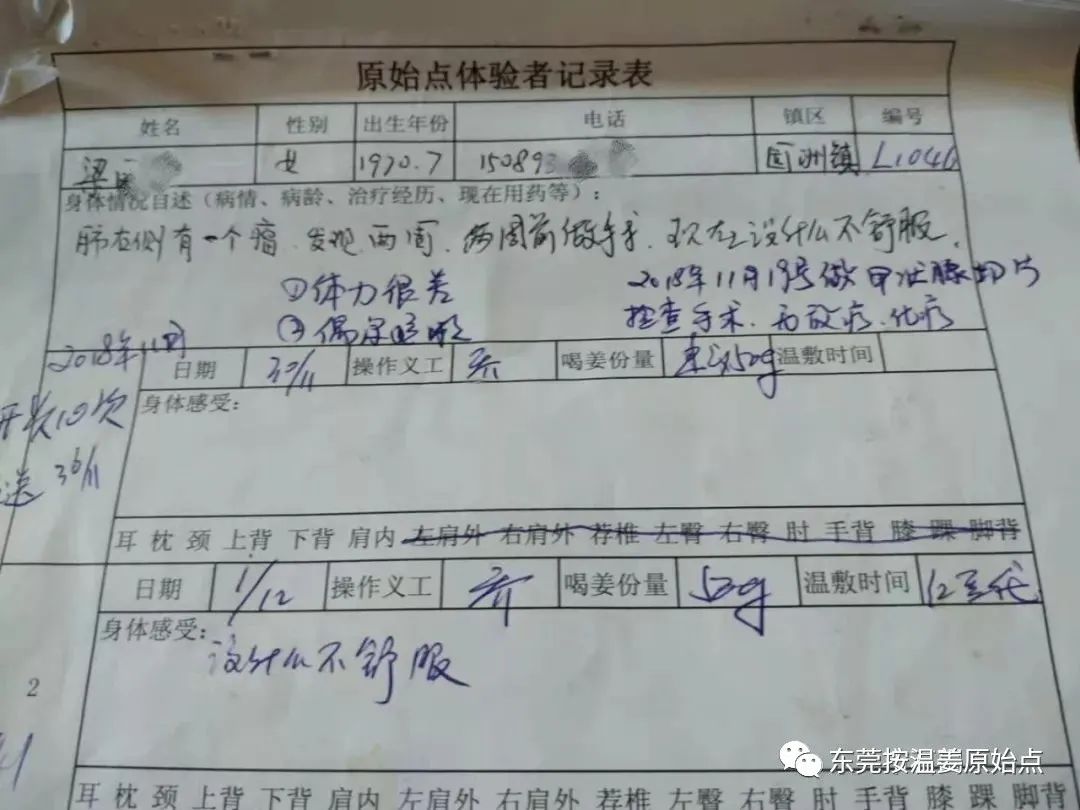 原始点体验者记录表
姓名 性别 出生年份 电话 镇区 编号
梁 女 1970.7 150893 洲镇 L1046
身体情况自述（病情、病龄、治疗经历、现在用药等）：
肺右侧有一个瘤、发现两周、两周前做手术、现在没什么不舒服。
①体力很差 2018年11月19号做甲状腺切片
②偶尔咳嗽 检查手术、无放疗、化疗
2018年11月
日期 30/11 操作义工 乔 喝姜份量 50g 温敷时间
身体感受：
10次
送 30/11
耳 枕 颈 上背 下背 肩内 左肩外 右肩外 荐椎 左臀 右臀 肘 手背 膝 踝 脚背
日期 1/12 操作义工 乔 喝姜份量 50g 温敷时间 12
身体感受：
没什么不舒服
2
东莞按温姜原始点
耳 枕 颈 上背 下背 肩内 左肩外 右肩外 荐椎 左臀 右臀 肘 手背 膝 踝 脚背